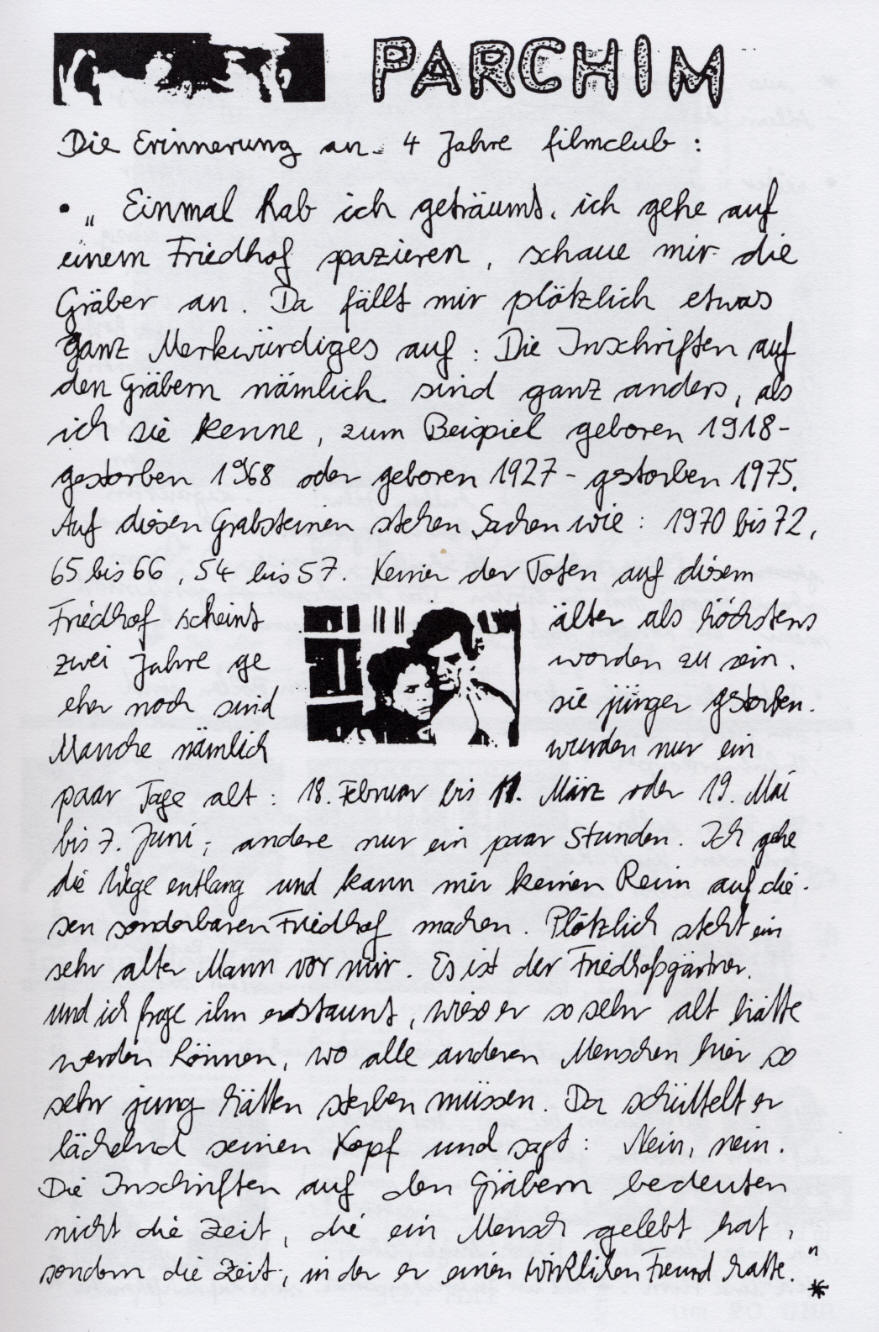 PARCHIM
Die Erinnerung an 4 Jahre filmclub :
• „ Einmal hab ich geträumt, ich gehe auf
einem Friedhof spazieren, schaue mir die
Gräber an. Da fällt mir plötzlich etwas
ganz Merkwürdiges auf : Die Inschriften auf
den Gräbern nämlich sind ganz anders, als
ich sie kenne, zum Beispiel geboren 1918-
gestorben 1968 oder geboren 1927 - gestorben 1975.
Auf diesen Grabsteinen stehen Sachen wie : 1970 bis 72,
65 bis 66, 54 bis 57. Keiner der Toten auf diesem
Friedhof scheint älter als höchstens
zwei Jahre ge worden zu sein.
eher noch sind sie jünger gestorben.
Manche nämlich wurden nur ein
paar Tage alt : 18. Februar bis 11. März oder 19. Mai
bis 7. Juni, andere nur ein paar Stunden. Ich gehe
die Wege entlang und kann mir keinen Reim auf die-
sen sonderbaren Friedhof machen. Plötzlich steht ein
sehr alter Mann vor mir. Es ist der Friedhofsgärtner.
und ich frage ihn erstaunt, wieso er so sehr alt hätte
werden können, wo alle anderen Menschen hier so
sehr jung hätten sterben müssen. Da schüttelt er
lächelnd seinen Kopf und sagt : Nein, nein.
Die Inschriften auf den Gräbern bedeuten
nicht die Zeit, die ein Mensch gelebt hat,
sondern die Zeit, in der er einen wirklichen Freund hatte." *